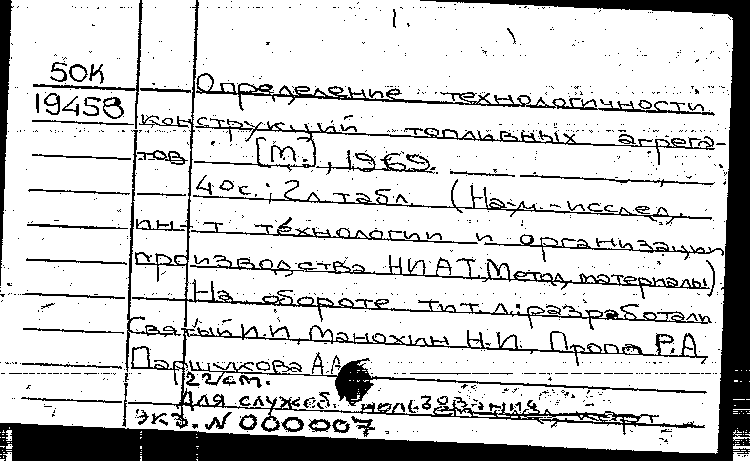 1.
50К
19458
Определение технологичности
конструкций топливных агрега-
тов [М.], 1969.
40с.; 2л табл. (Науч.-исслед.
ин-т технологии и организации
производства НИАТ. Метод. материалы)
На обороте тит. л.: разработали
Святый И.И, Манохин Н.И.,
Паршукова А.А
22 см.
Для служеб. пользования,
экз. N 000007